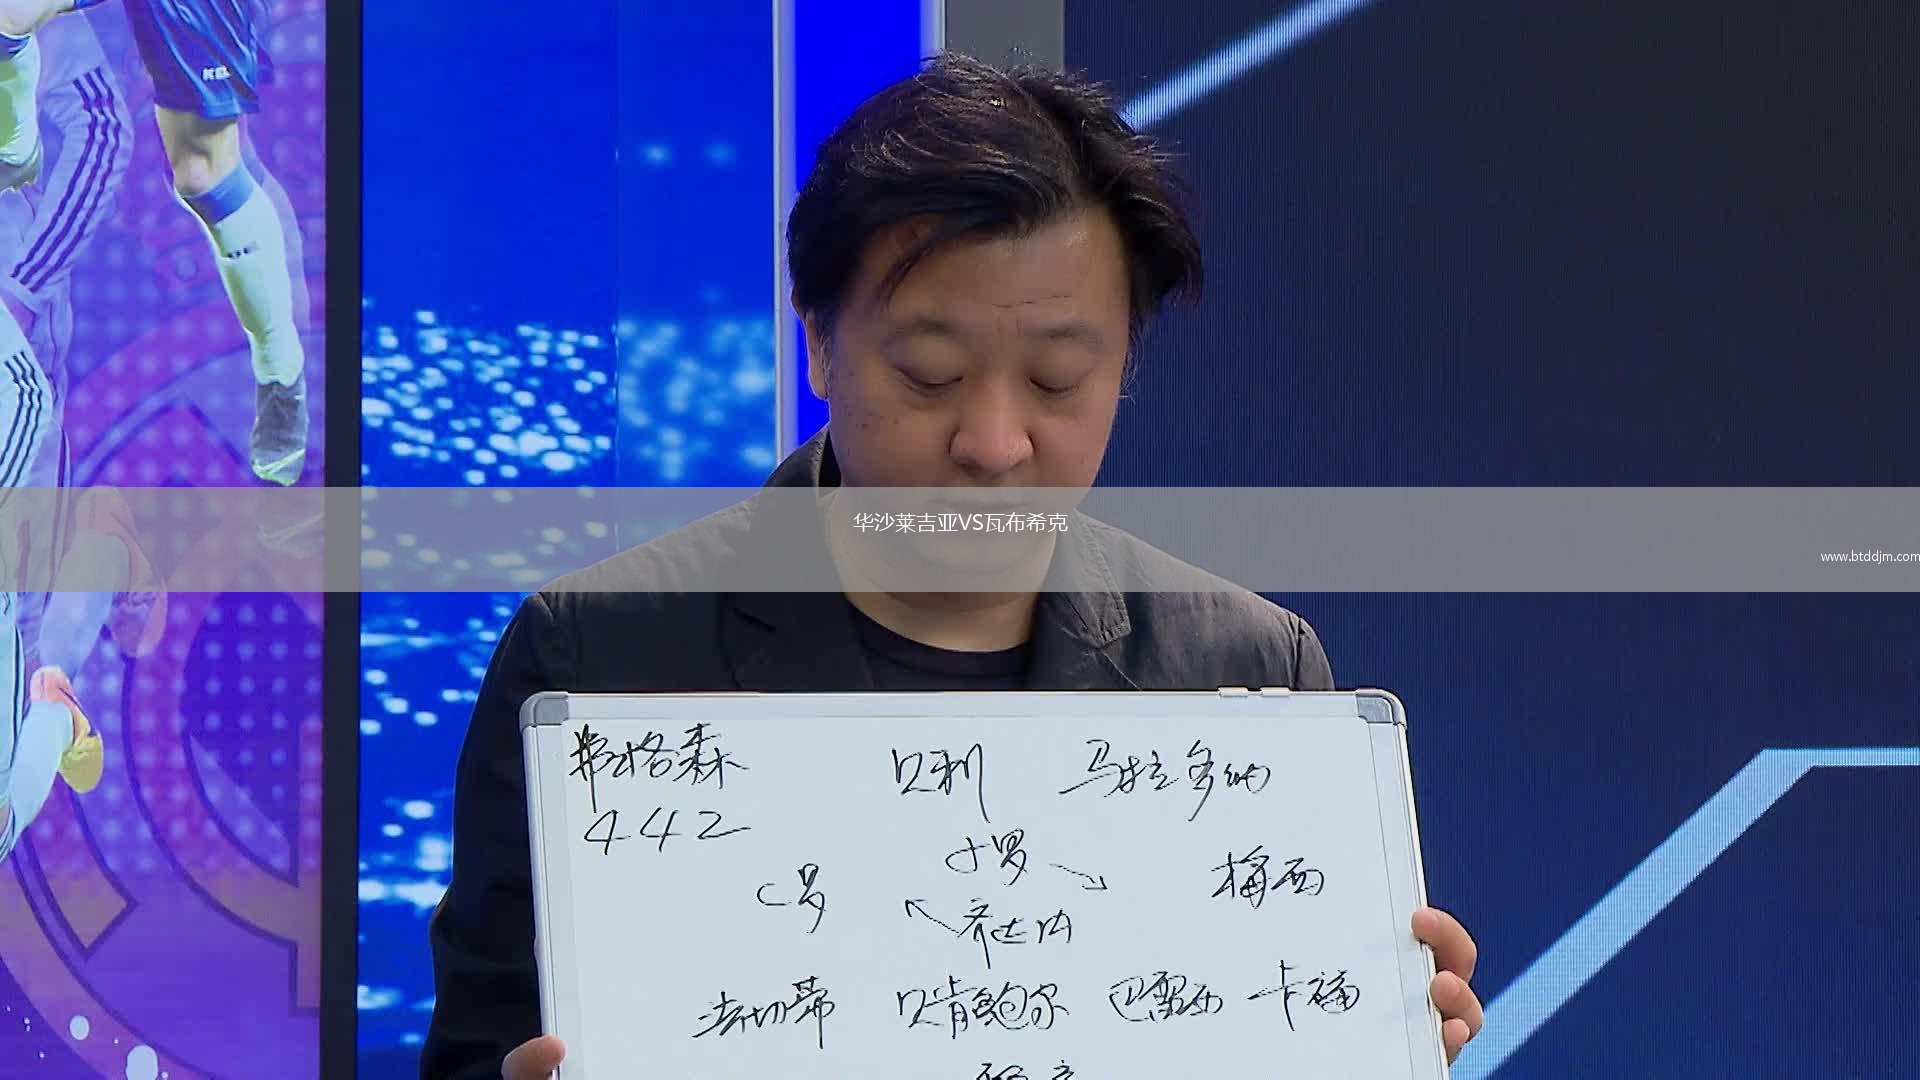 华沙莱吉亚VS瓦布希克
www.btddjm.com
弗格森 贝利 马拉多纳
442
小罗
C罗 梅西
齐达内
法切蒂 贝肯鲍尔 巴雷西 卡福